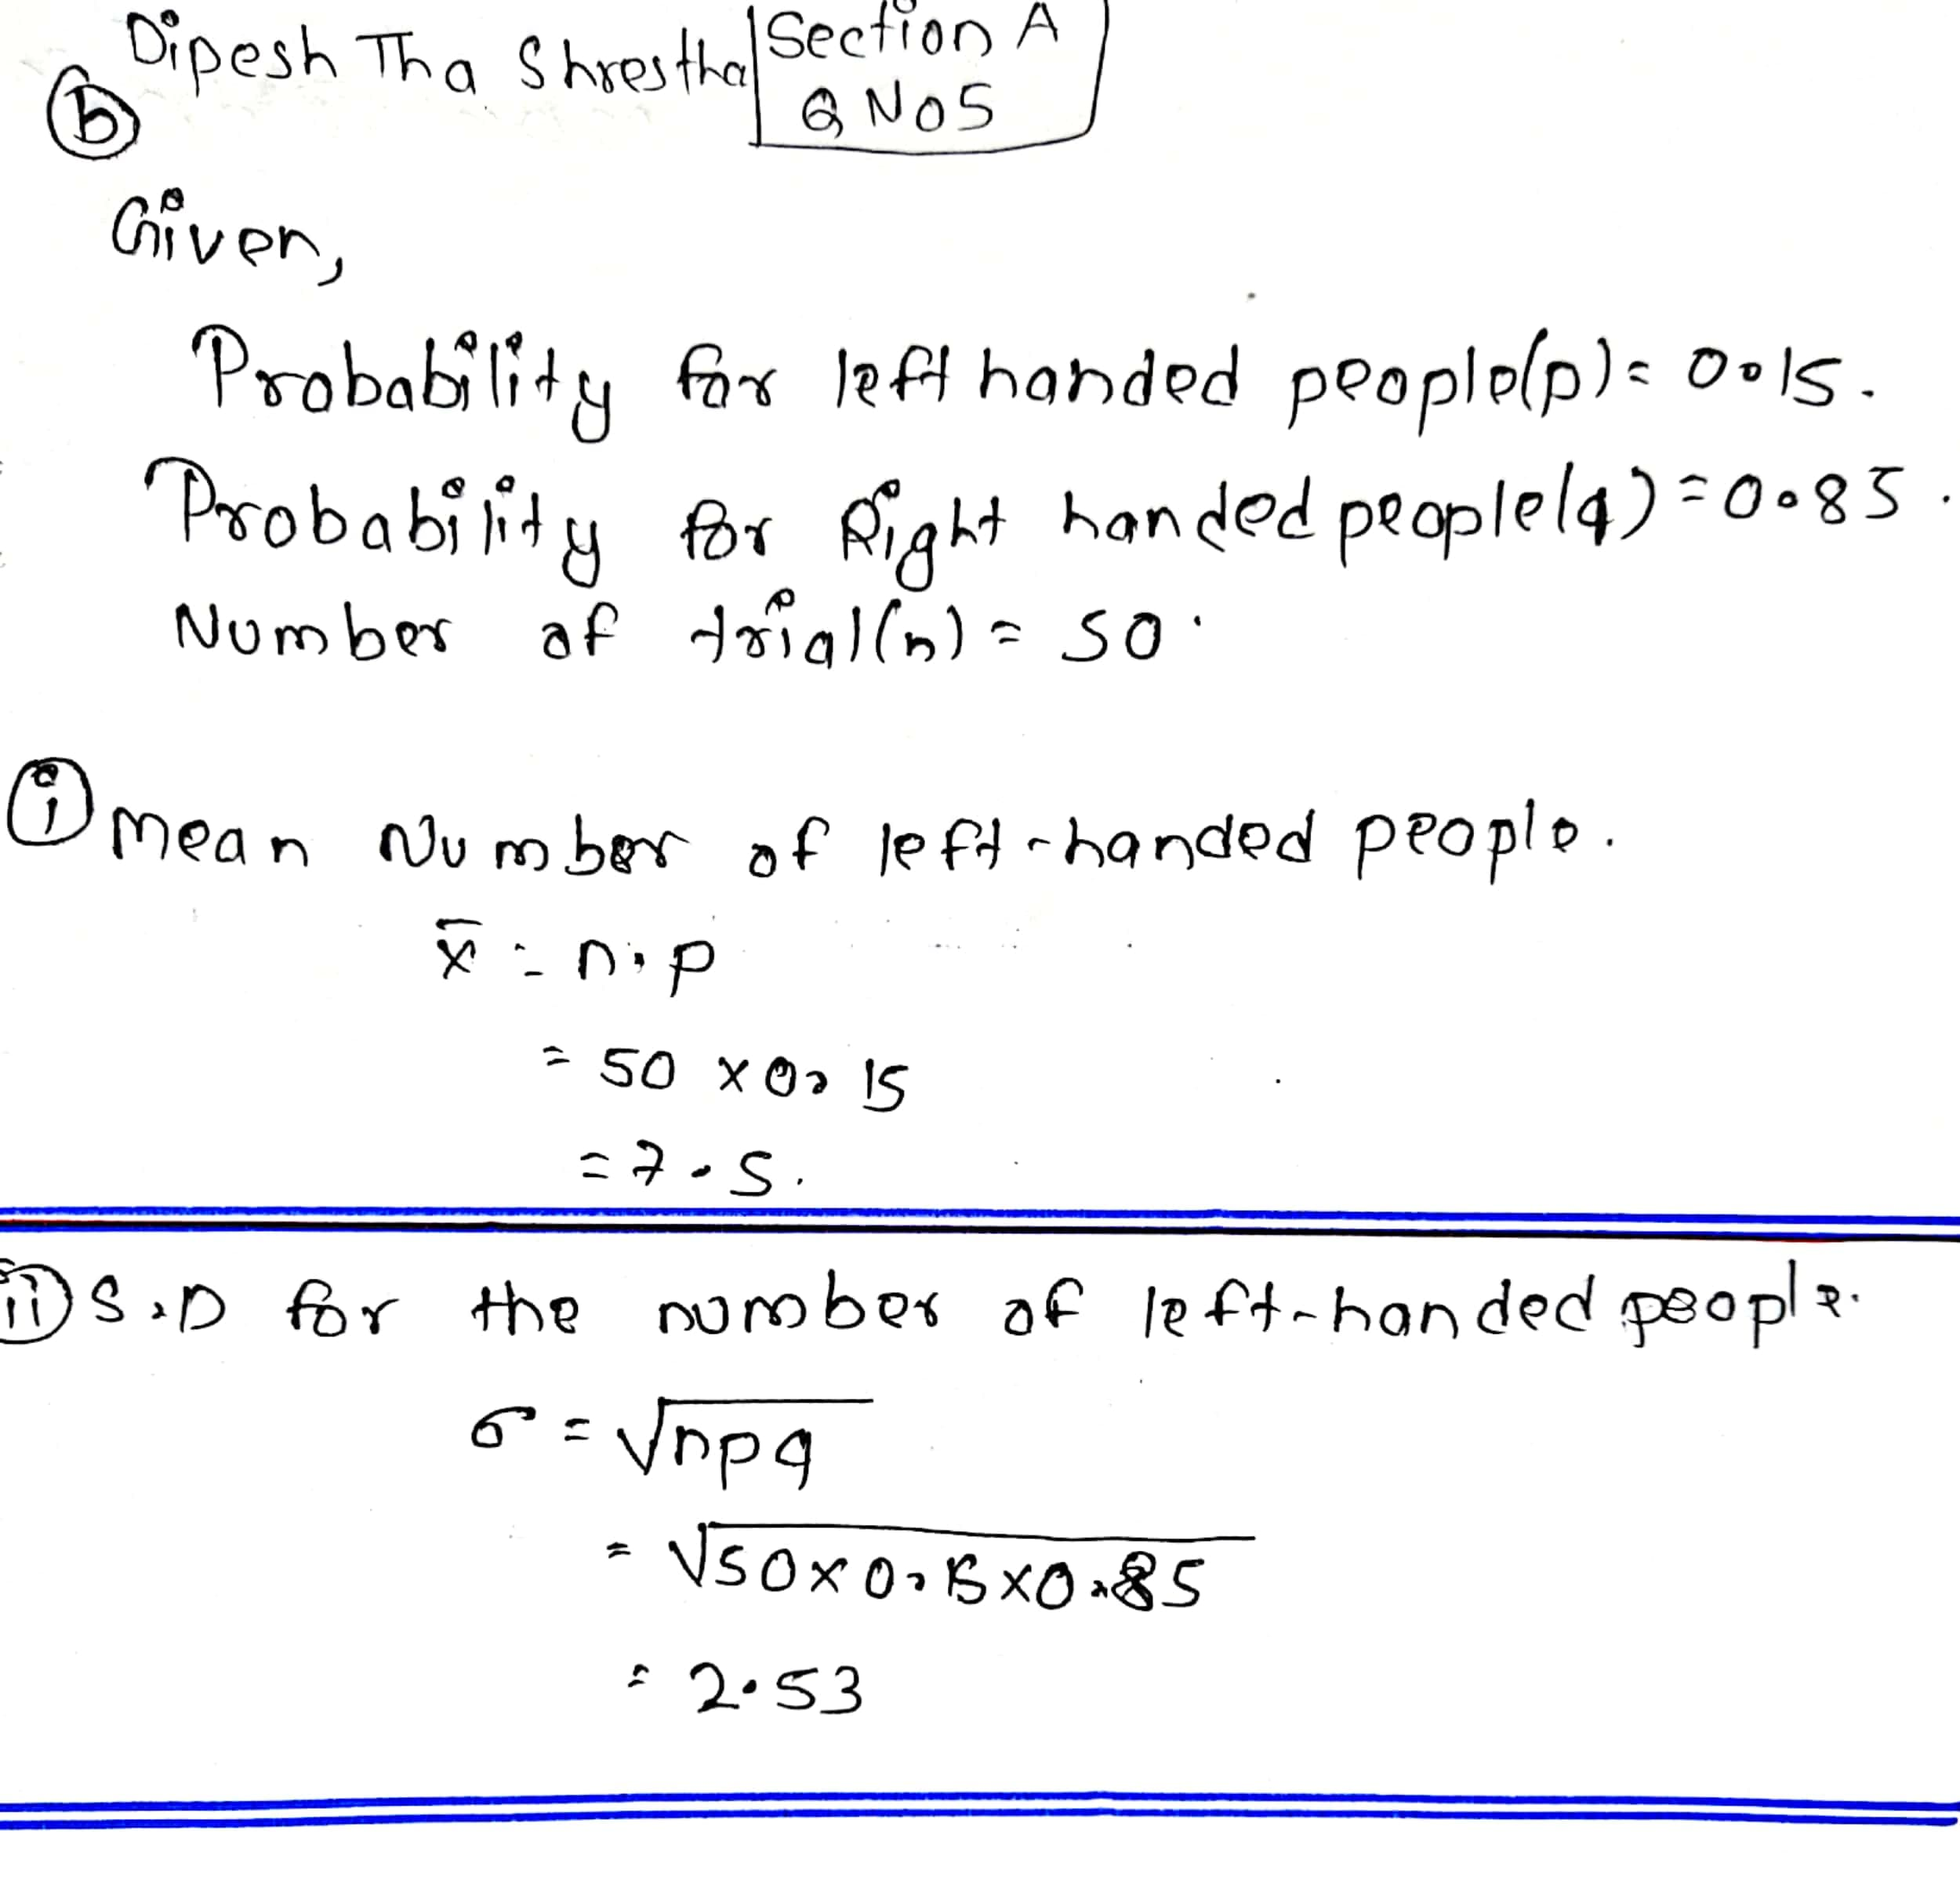 Dipesh Tha Shrestha
Section A
Q NO5
b
Given,
Probability for left handed people(p) = 0.15.
Probability for Right handed people(q) = 0.85.
Number of trial(n) = 50.
i Mean Number of left-handed people.
x̄ = n.p
= 50 × 0.15
= 7.5.
ii S.D for the number of left-handed people.
σ = √npq
= √50×0.15×0.85
= 2.53